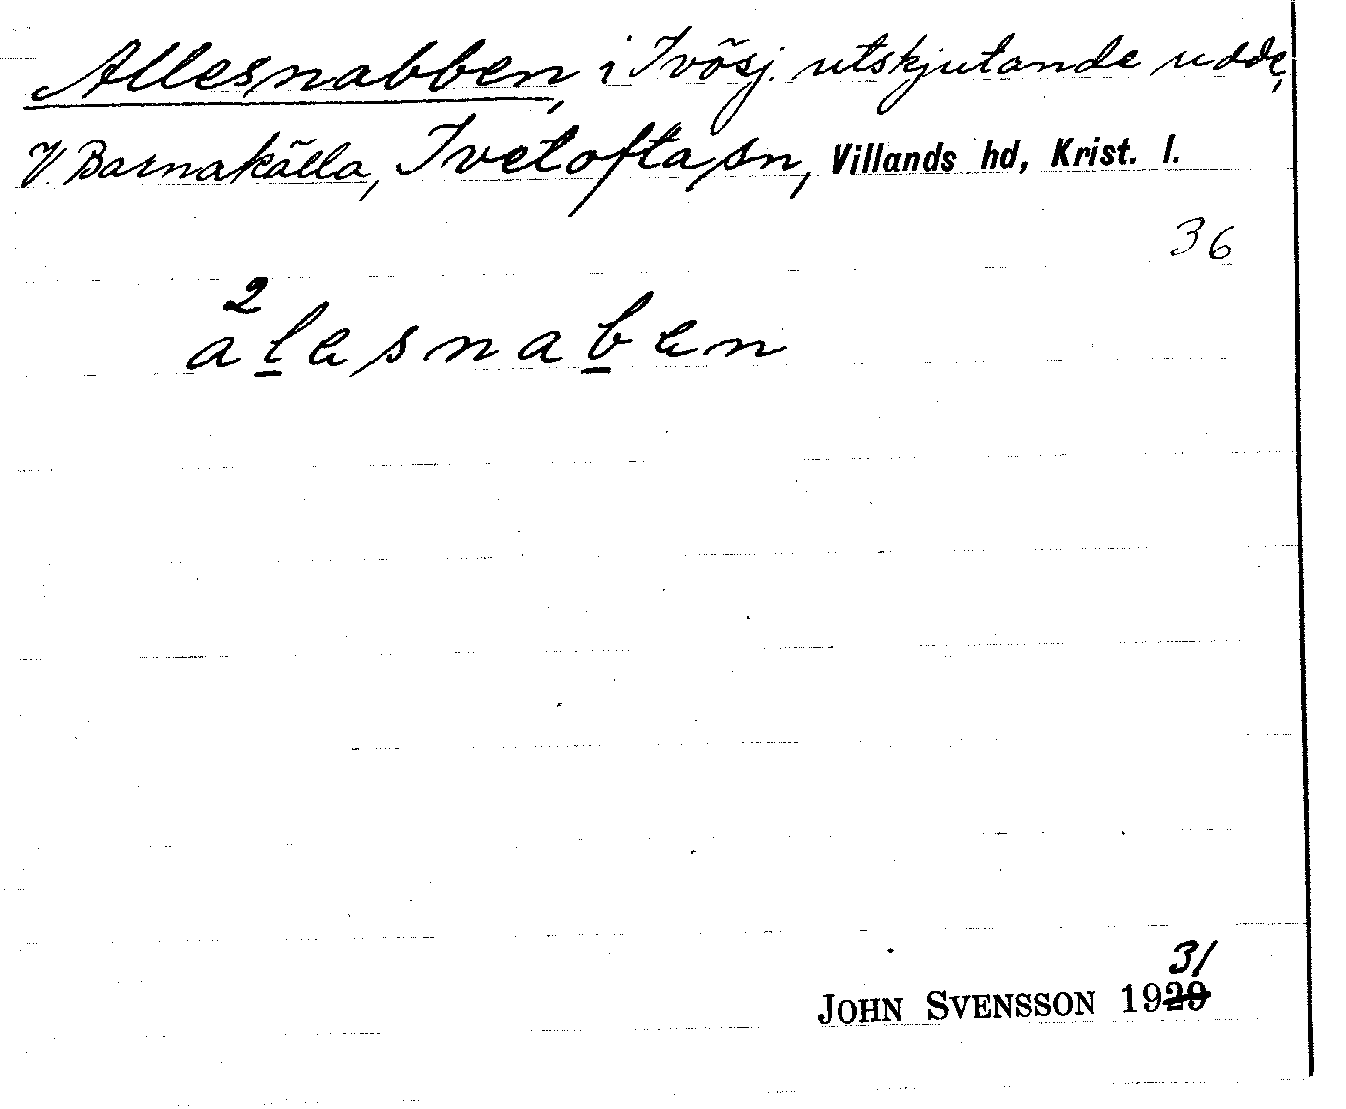 Allesnabben, i Ivösj. utskjutande udde,
V. Barnakälla, Ivetofta sn, Villands hd, Krist. l.
36
2
alesnaben
31
JOHN SVENSSON 1929